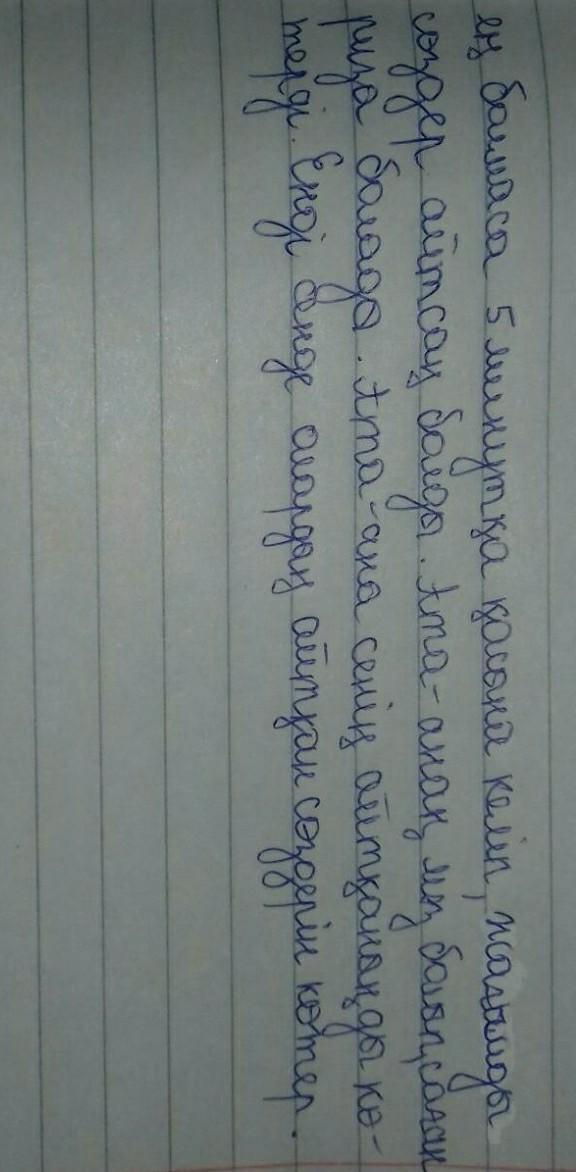 ең болмаса 5 минутқа қасына келіп, жағымды
сөздер айтсаң болды. Ата-анаң мың болып, санан
риза болады. Ата-ана сенің айтқаныңды кө-
терді. Енді сенде олардың айтқан сөздерін көтер.